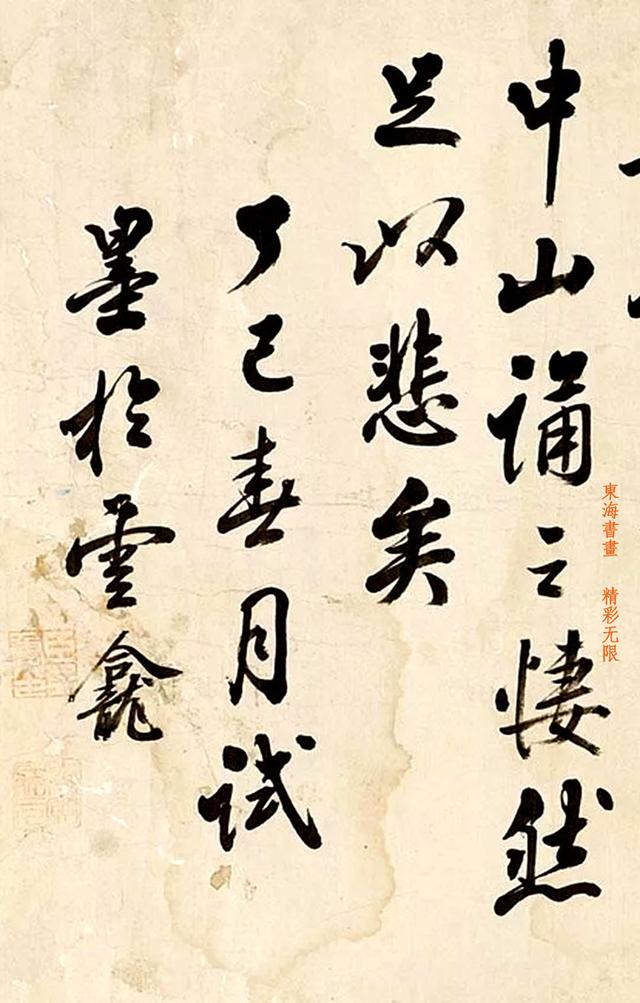 中山誦之悽然
足以悲矣
丁巳春月試
墨於雲龕
東海書畫 精彩无限